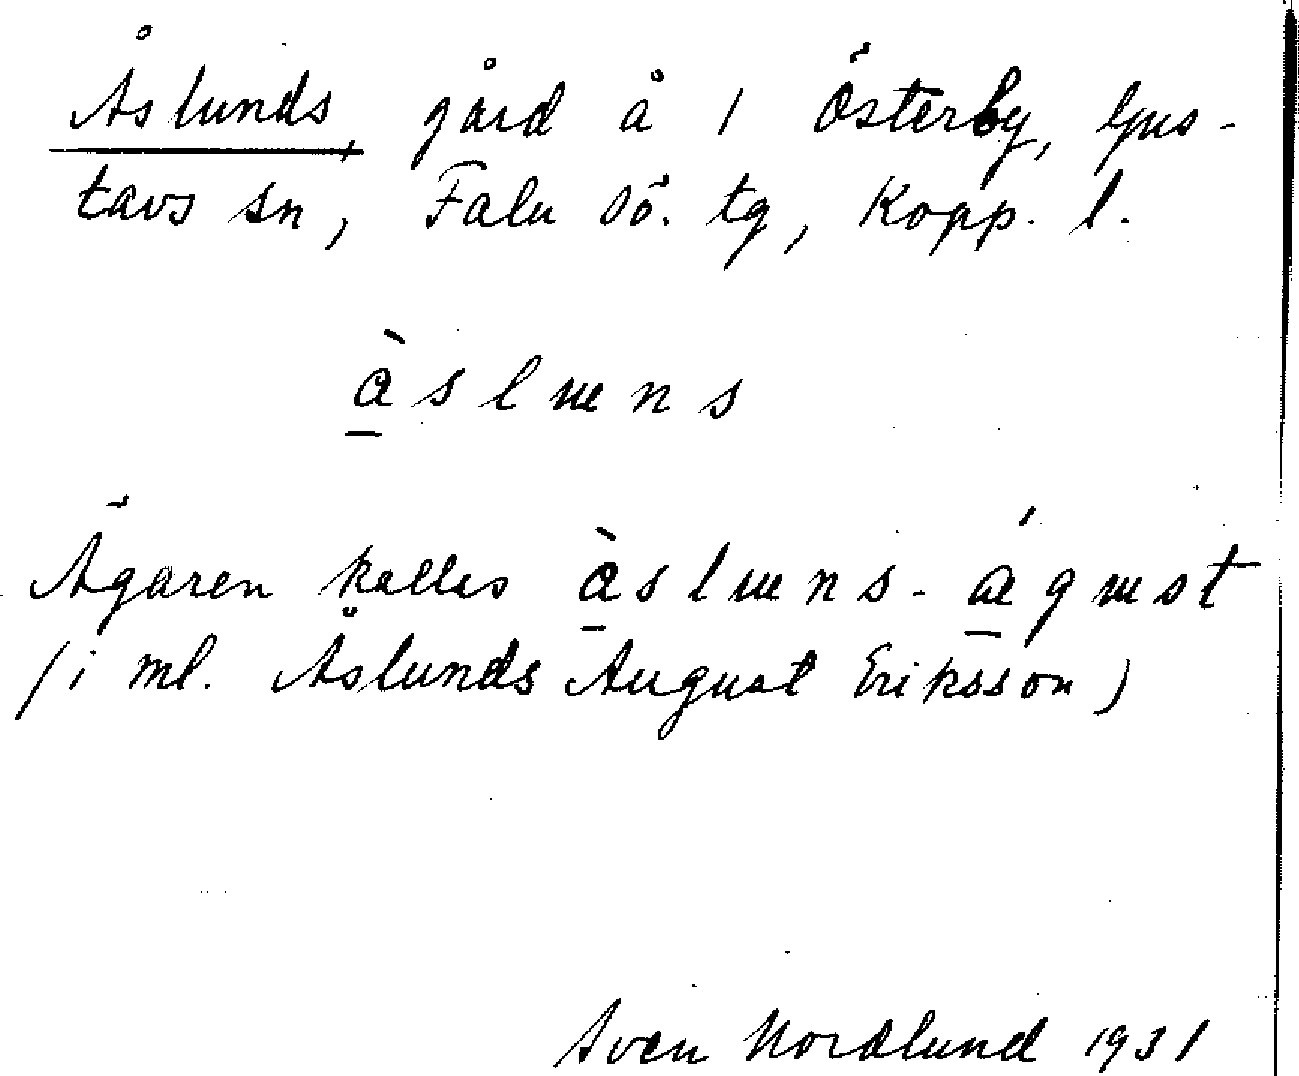 Åslunds, gård å 1 Österby, Gus-
tavs sn, Falu sö. tg, Kopp. l.
àslɯns
Ägaren kallas àslɯns-ágɯst
(i ml. Åslunds August Eriksson)
Sven Nordlund 1931